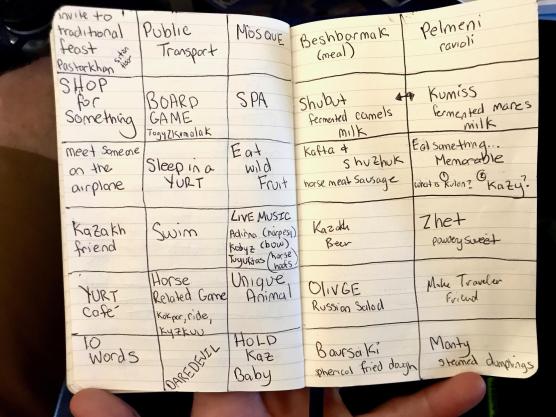 invite to
traditional
feast
Dastarkhan
Public
Transport
Mosque
Beshbarmak
(meal)
Pelmeni
ravioli
SHOP
for
Something
BOARD
GAME
TogyZKumalak
SPA
Shubut
fermented camels
milk
Kumiss
fermented mares
milk
meet someone
on the
airplane
Sleep in a
YURT
Eat
wild
Fruit
Kafta &
Shuzhuk
horse meat sausage
Eat something...
Memorable
Kazy?
Kazakh
friend
Swim
LIVE MUSIC
Kobyz (bow)
(horse
Kazakh
Beer
Zhet
powdery sweet
YURT
Café
Horse
Related Game
Kokpar, ride,
Kyzkuu
Unique
Animal
OLIVGE
Russian Salad
Make Traveler
Friend
10
Words
DAREDEVIL
HOLD
Kaz
Baby
Baursaki
spherical fried dough
Manty
steamed dumplings